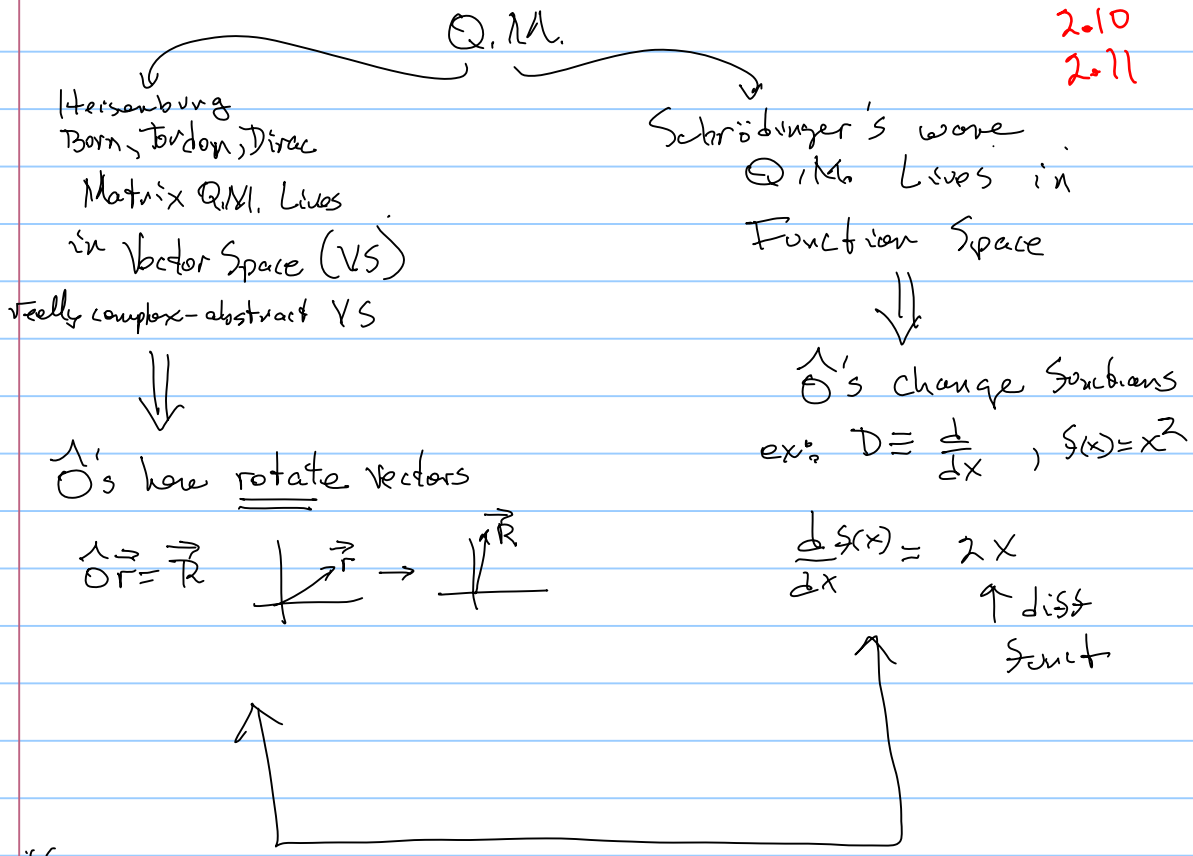 Q.M.
2.10
2.11
Heisenburg
Born, Jordon, Dirac
Matrix Q.M. Lives
in Vector Space (VS)
really complex-abstract VS
Ô's here rotate vectors
Ô r⃗ = R⃗
r⃗ → R⃗
Schrödinger's wave
Q.M. Lives in
Function Space
Ô's change functions
ex: D ≡ d/dx , f(x)=x²
d/dx f(x) = 2x
↑ diff
funct